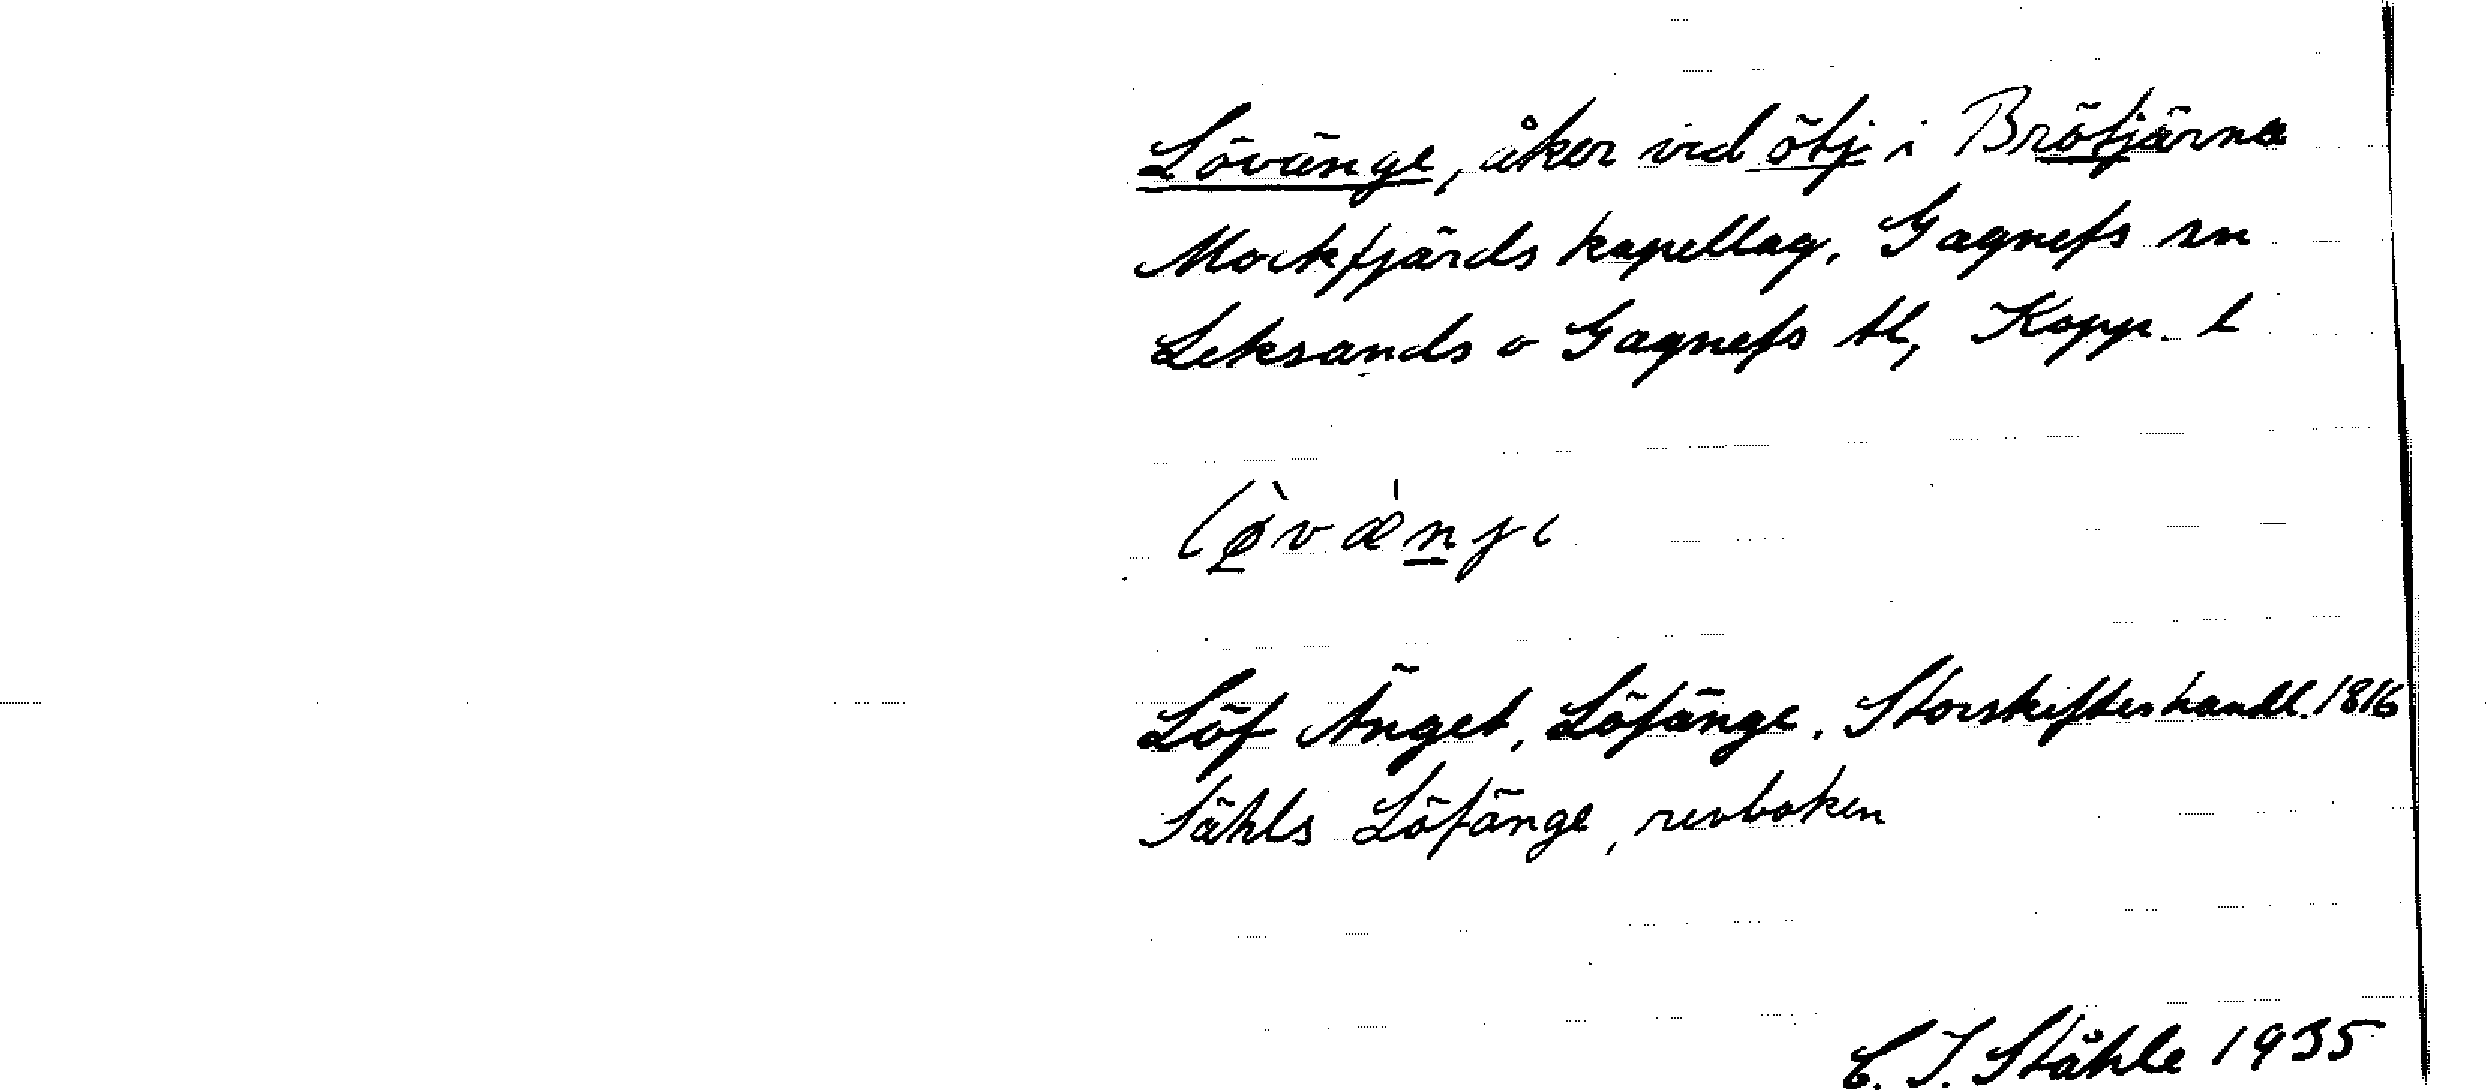 Lövänge, åker vid ötj i Brötjärna
Mockfjärds kapellag, Gagnefs sn
Leksands o Gagnefs tl, Kopp. l
Löf Änget, Löfänge. Storskifteshandl. 1816
Sähls Löfänge, revboken
C. I. Ståhle 1935